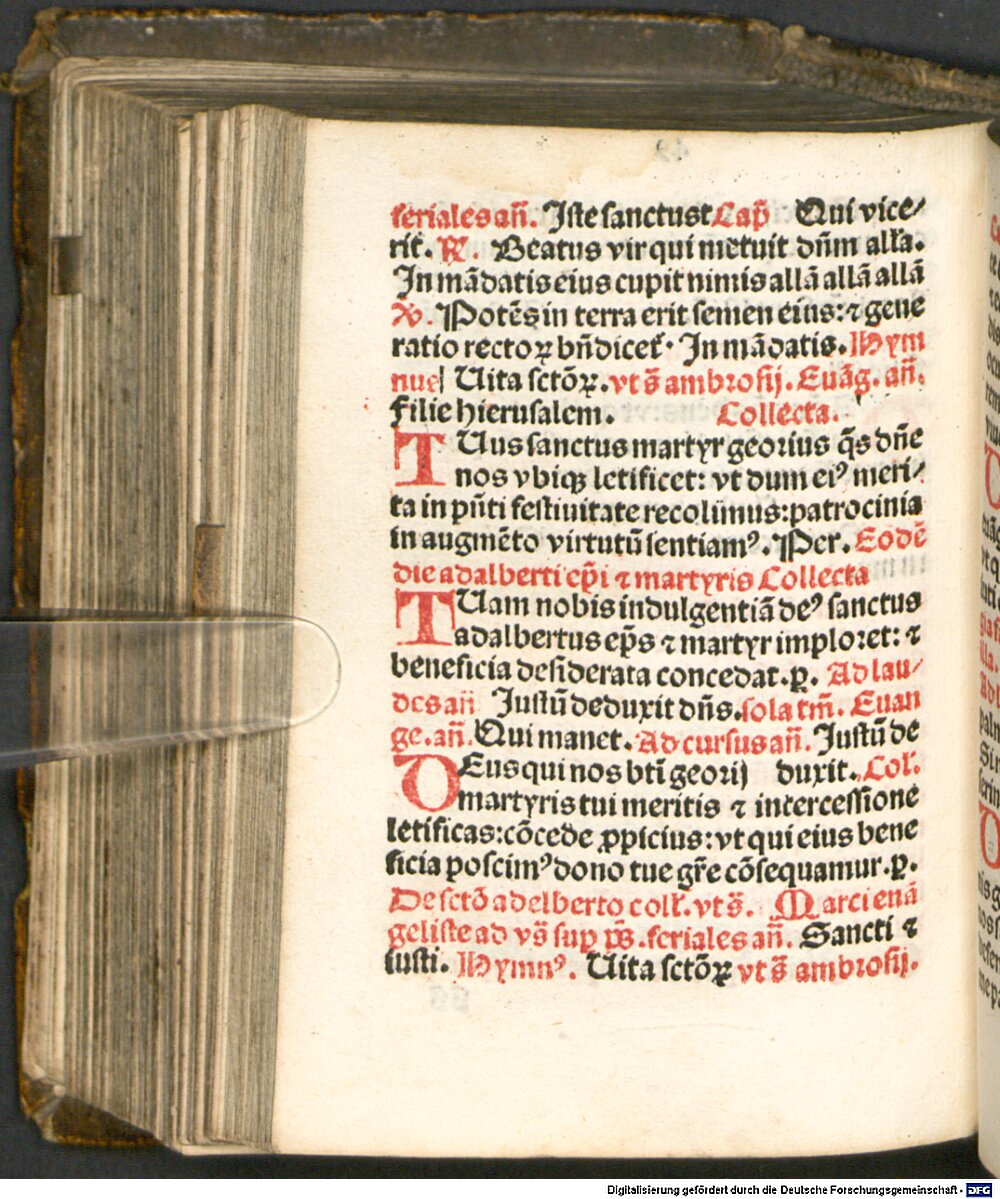 feriales añ. Iste sanctust Cap̃ Qui vice⸗
rit. ℟. Beatus vir qui metuit dñm alła.
In mãdatis eius cupit nimis allã allã allã
℣. Potẽs in terra erit semen eius: ⁊ gene
ratio rectoꝝ bñdicet̃. In mãdatis. Hym
nus Uita sctõꝝ. vt s̃ ambrosij. Euãg. añ.
Filie hierusalem. Collecta.
TUus sanctus martyr georius q̃s dñe
nos vbiqꝫ letificet: vt dum eiꝰ meri⸗
ta in pñti festiuitate recolimus: patrocinia
in augmẽto virtutũ sentiamꝰ. Per. Eodẽ
die adalberti ep̃i ⁊ martyris Collecta
TUam nobis indulgentiã deꝰ sanctus
adalbertus ep̃s ⁊ martyr imploret: ⁊
beneficia desiderata concedat. ꝑ. Ad lau⸗
des añ Justũ deduxit dñs. sola tm̃. Euan
ge. añ. Qui manet. Ad cursus añ. Justũ de
DEus qui nos bti georij duxit. Col̃.
martyris tui meritis ⁊ intercessione
letificas: cõcede ꝓpicius: vt qui eius bene
ficia poscimꝰ dono tue gr̃e cõsequamur. ꝑ.
De sctõ adelberto coll̃. vt s̃. Marci euã
geliste ad vs̃ sup p̃s. feriales añ. Sancti ⁊
iusti. Hymnꝰ. Uita sctõꝝ vt s̃ ambrosij.
Digitalisierung gefördert durch die Deutsche Forschungsgemeinschaft - DFG